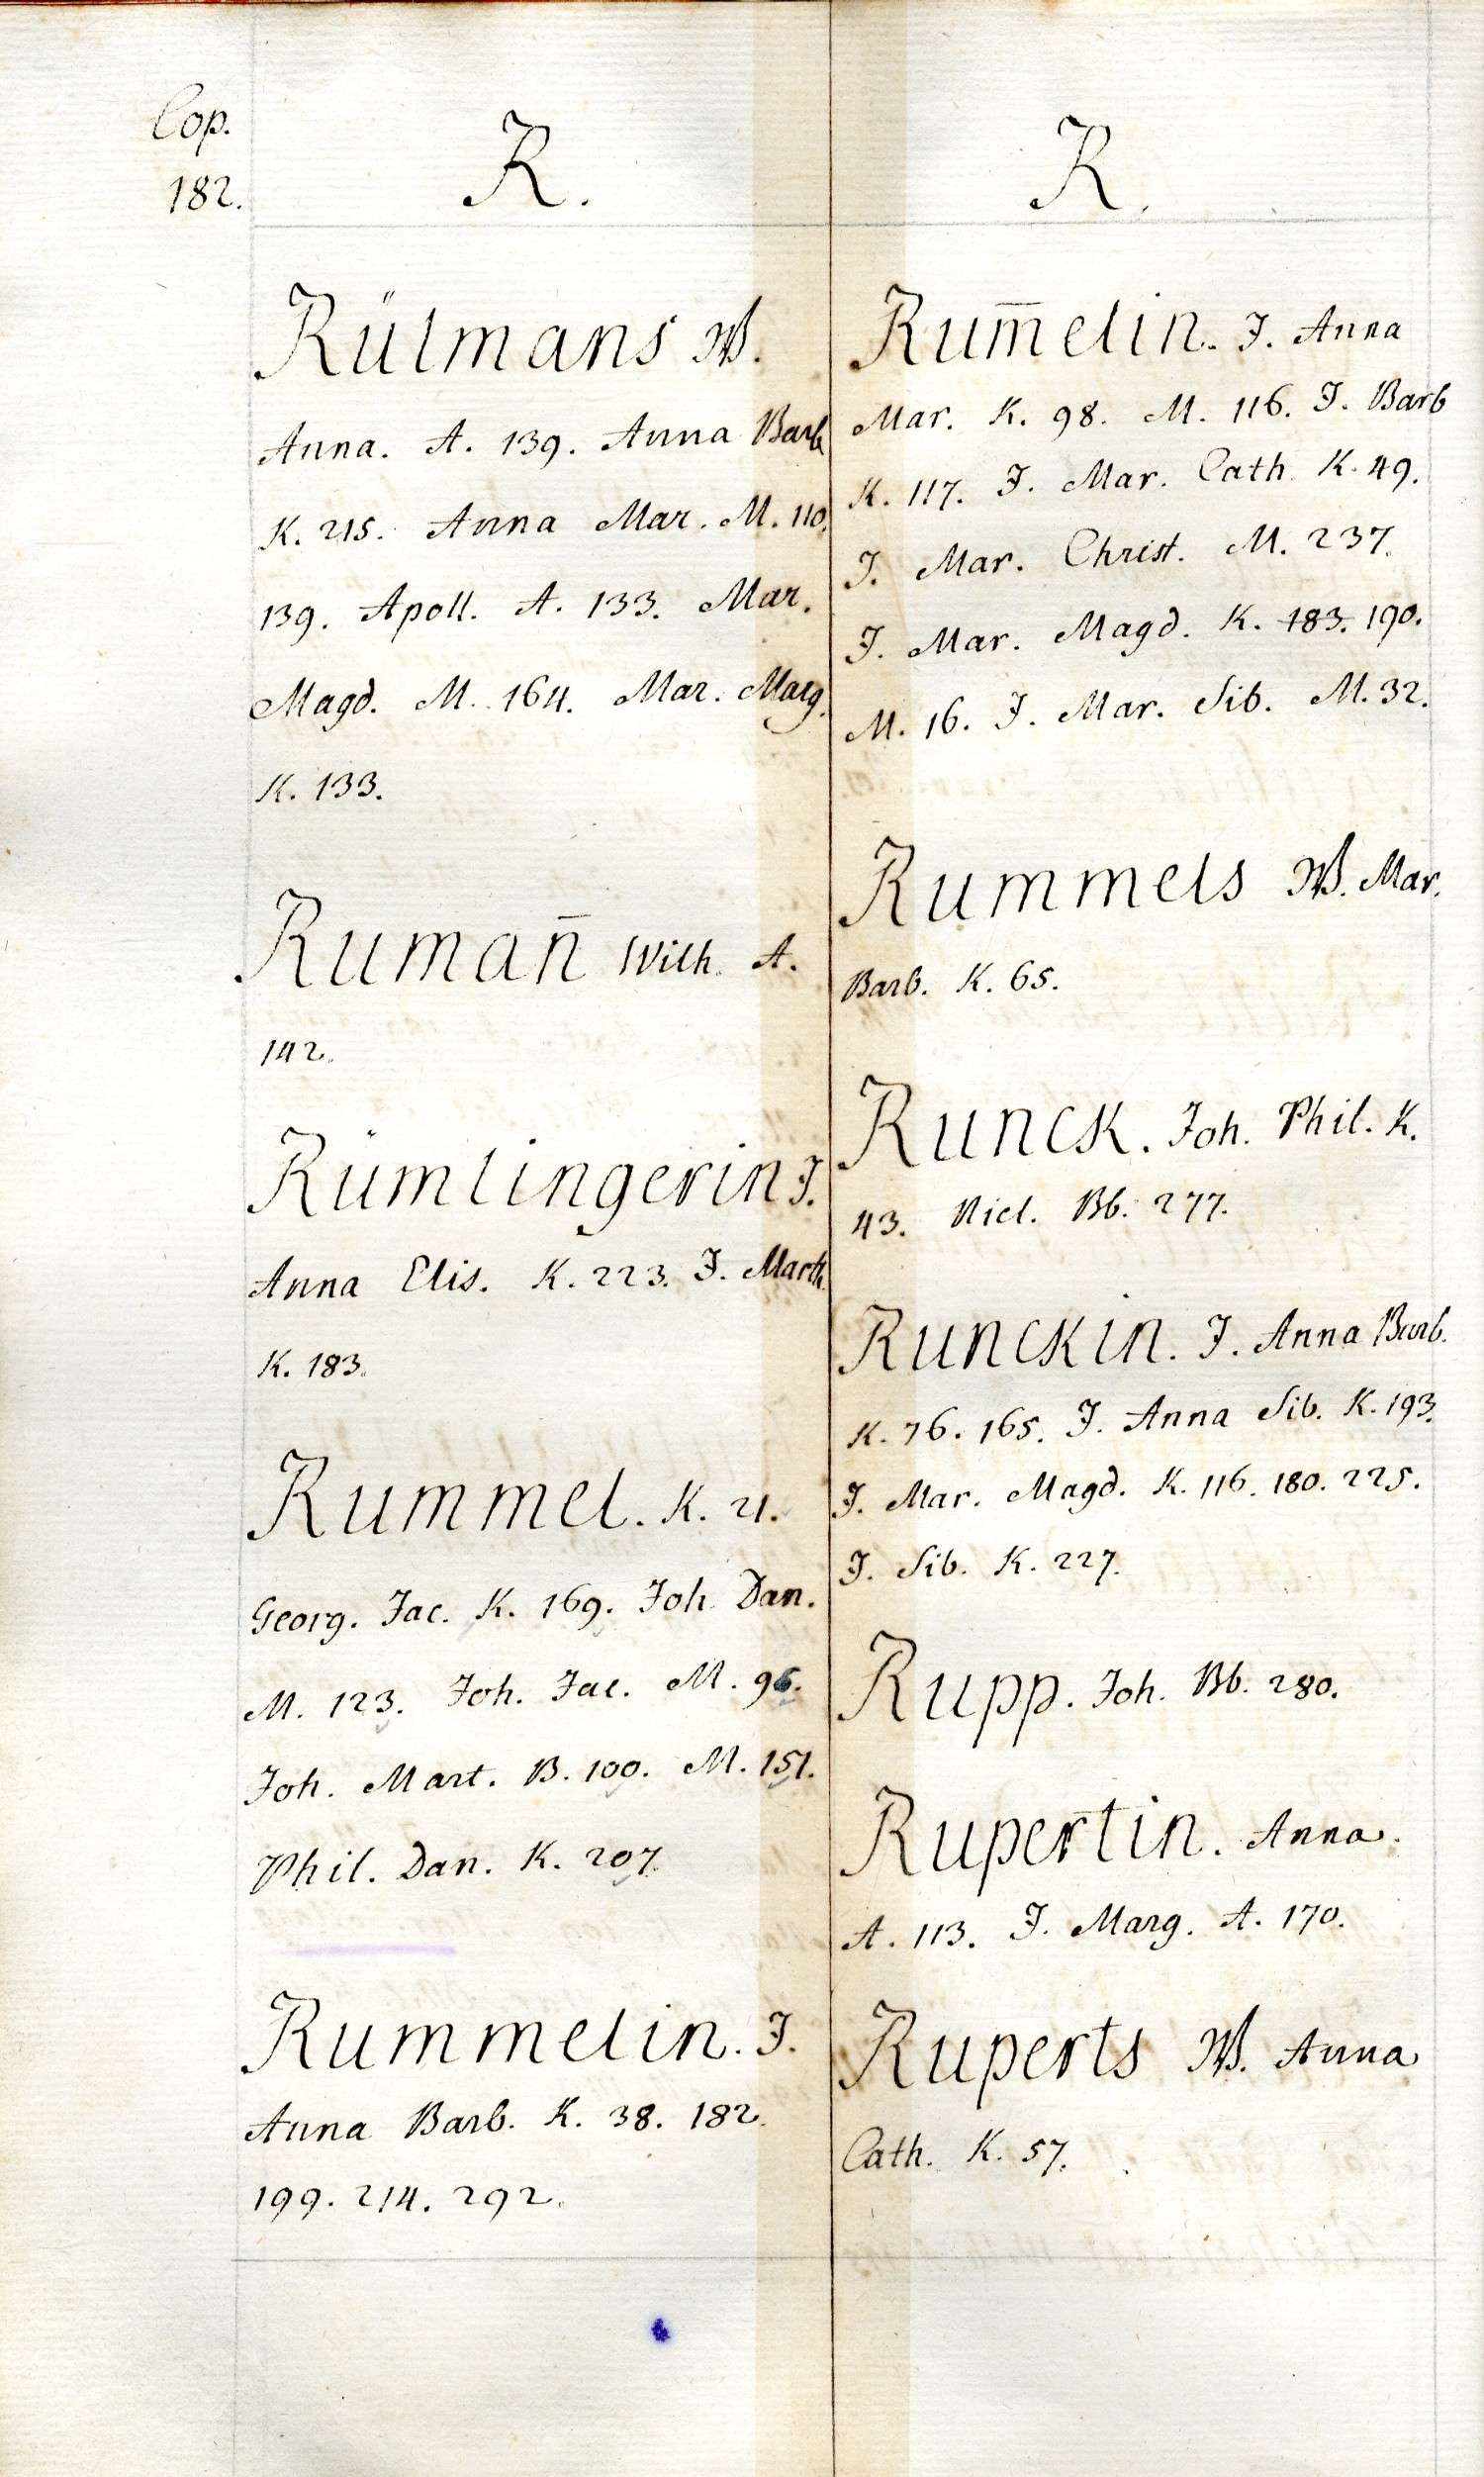 Cop.
182.
R.
Rülmans W.
Anna. A. 139. Anna Barb
K. 215. Anna Mar. M. 110.
139. Apoll. A. 133. Mar.
Magd. M. 164. Mar. Marg.
K. 133.
Ruman̄ Wilh. A.
142.
Rümlingerin J.
Anna Elis. K. 223. J. Marth.
K. 183.
Rummel. K. 21.
Georg. Jac. K. 169. Joh. Dan.
M. 123. Joh. Jac. M. 96.
Joh. Mart. B. 100. M. 151.
Phil. Dan. K. 207.
Rummelin. J.
Anna Barb. K. 38. 182.
199. 214. 292.
R.
Rum̄elin. J. Anna
Mar. K. 98. M. 116. J. Barb
K. 117. J. Mar. Cath. K. 49.
J. Mar. Christ. M. 237.
J. Mar. Magd. K. 183. 190.
M. 16. J. Mar. Sib. M. 32.
Rummels W. Mar.
Barb. K. 65.
Runck. Joh. Phil. K.
43. Nicl. Bb. 277.
Runckin. J. Anna Barb.
K. 76. 165. J. Anna Sib. K. 193.
J. Mar. Magd. K. 116. 180. 225.
J. Sib. K. 227.
Rupp. Joh. Bb. 280.
Rupertin. Anna.
A. 113. J. Marg. A. 170.
Ruperts W. Anna
Cath. K. 57.